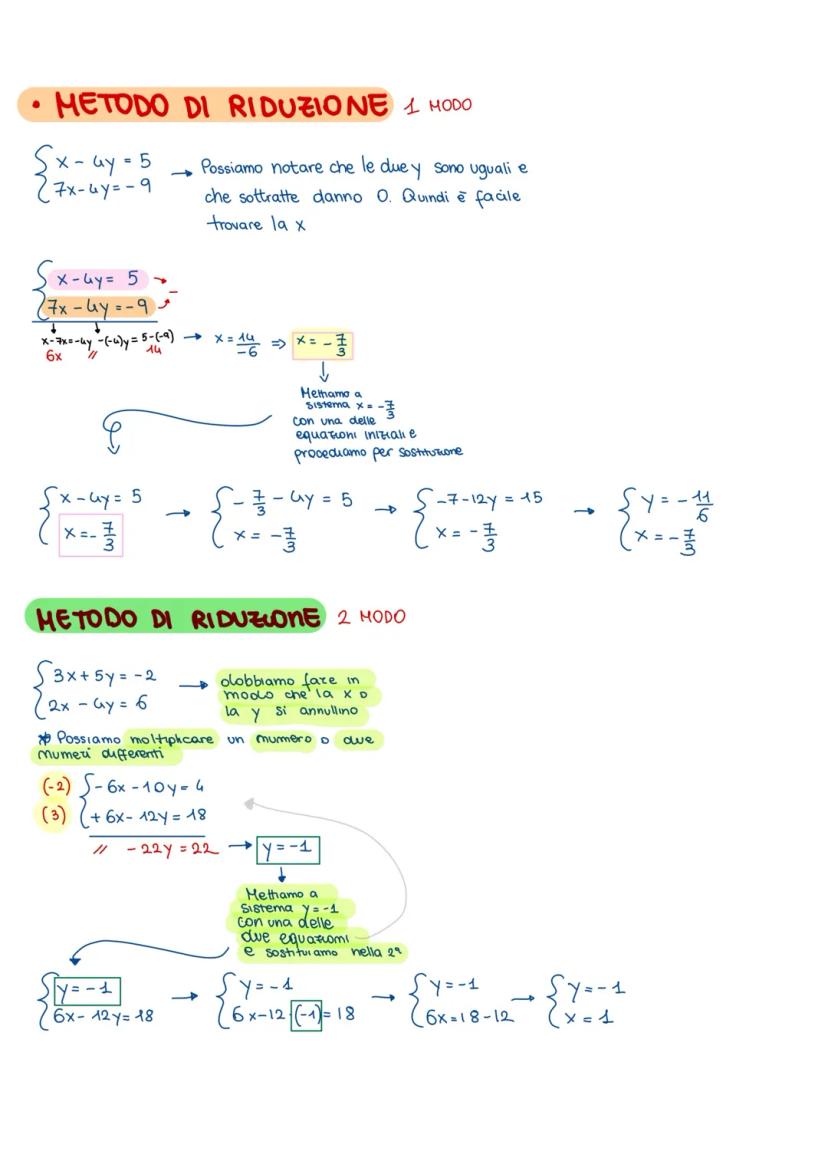 • METODO DI RIDUZIONE 1 MODO
{ x - 4y = 5 → Possiamo notare che le due y sono uguali e
{ 7x - 4y = - 9 che sottratte danno 0. Quindi è facile
trovare la x
{ x - 4y = 5 → -
{ 7x - 4y = - 9
x - 7x = -4y - (-4)y = 5 - (-9) → x = 14/-6 ⇒ x = - 7/3
6x // 14
↓
Mettiamo a
sistema x = - 7/3
con una delle
equazioni iniziali e
procediamo per sostituzione
{ x - 4y = 5 → { - 7/3 - 4y = 5 → { -7 - 12y = 15 → { y = - 11/6
{ x = - 7/3 { x = - 7/3 { x = - 7/3 { x = - 7/3
METODO DI RIDUZIONE 2 MODO
{ 3x + 5y = -2 → dobbiamo fare in
{ 2x - 4y = 6 modo che la x o
la y si annullino
* Possiamo moltiplicare un numero o due
numeri differenti
(-2) { - 6x - 10y = 4
(3) { + 6x - 12y = 18
// - 22y = 22 → y = -1
↓
Mettiamo a
sistema y = -1
con una delle
due equazioni
e sostituiamo nella 2ª
{ y = -1 → { y = -1 → { y = -1 → { y = -1
{ 6x - 12y = 18 { 6x - 12 (-1) = 18 { 6x = 18 - 12 { x = 1